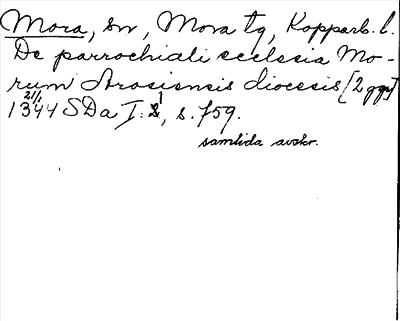 Mora, sn, Mora tg, Kopparb. l.
De parrochiali ecclesia Mo-
rum Arosiensis diocesis [2 ggr]
21/1 1344 SDa I:1, s. 759.
samtida avskr.